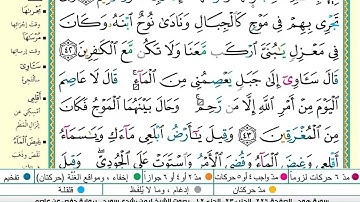 تَجْرِى بِهِمْ فِى مَوْجٍ كَٱلْجِبَالِ وَنَادَىٰ نُوحٌ ٱبْنَهُۥ وَكَانَ
فِى مَعْزِلٍ يَٰبُنَىَّ ٱرْكَب مَّعَنَا وَلَا تَكُن مَّعَ ٱلْكَٰفِرِينَ ٤٢
قَالَ سَـَٔاوِىٓ إِلَىٰ جَبَلٍ يَعْصِمُنِى مِنَ ٱلْمَآءِ ۚ قَالَ لَا عَاصِمَ
ٱلْيَوْمَ مِنْ أَمْرِ ٱللَّهِ إِلَّا مَن رَّحِمَ ۚ وَحَالَ بَيْنَهُمَا ٱلْمَوْجُ فَكَانَ
مِنَ ٱلْمُغْرَقِينَ ٤٣ وَقِيلَ يَٰٓأَرْضُ ٱبْلَعِى مَآءَكِ وَيَٰسَمَآءُ
أَقْلِعِى وَغِيضَ ٱلْمَآءُ وَقُضِىَ ٱلْأَمْرُ وَٱسْتَوَتْ عَلَى ٱلْجُودِىِّ ۖ وَقِيلَ
مَجْر۪ىٰهَا
وَمُرْسَىٰهَا
سَـَٔاوِىٓ
أَقْلِعِى
وَغِيضَ ٱلْمَآءُ
مدّ ٦ حركات لزوماً مدّ ٢ أو ٤ أو ٦ جوازاً إخفاء، ومواقع الغُنَّة (حركتان) تفخيم
مدّ واجب ٤ أو ٥ حركات مدّ حركتان إدغام، وما لا يُلفَظ قلقلة